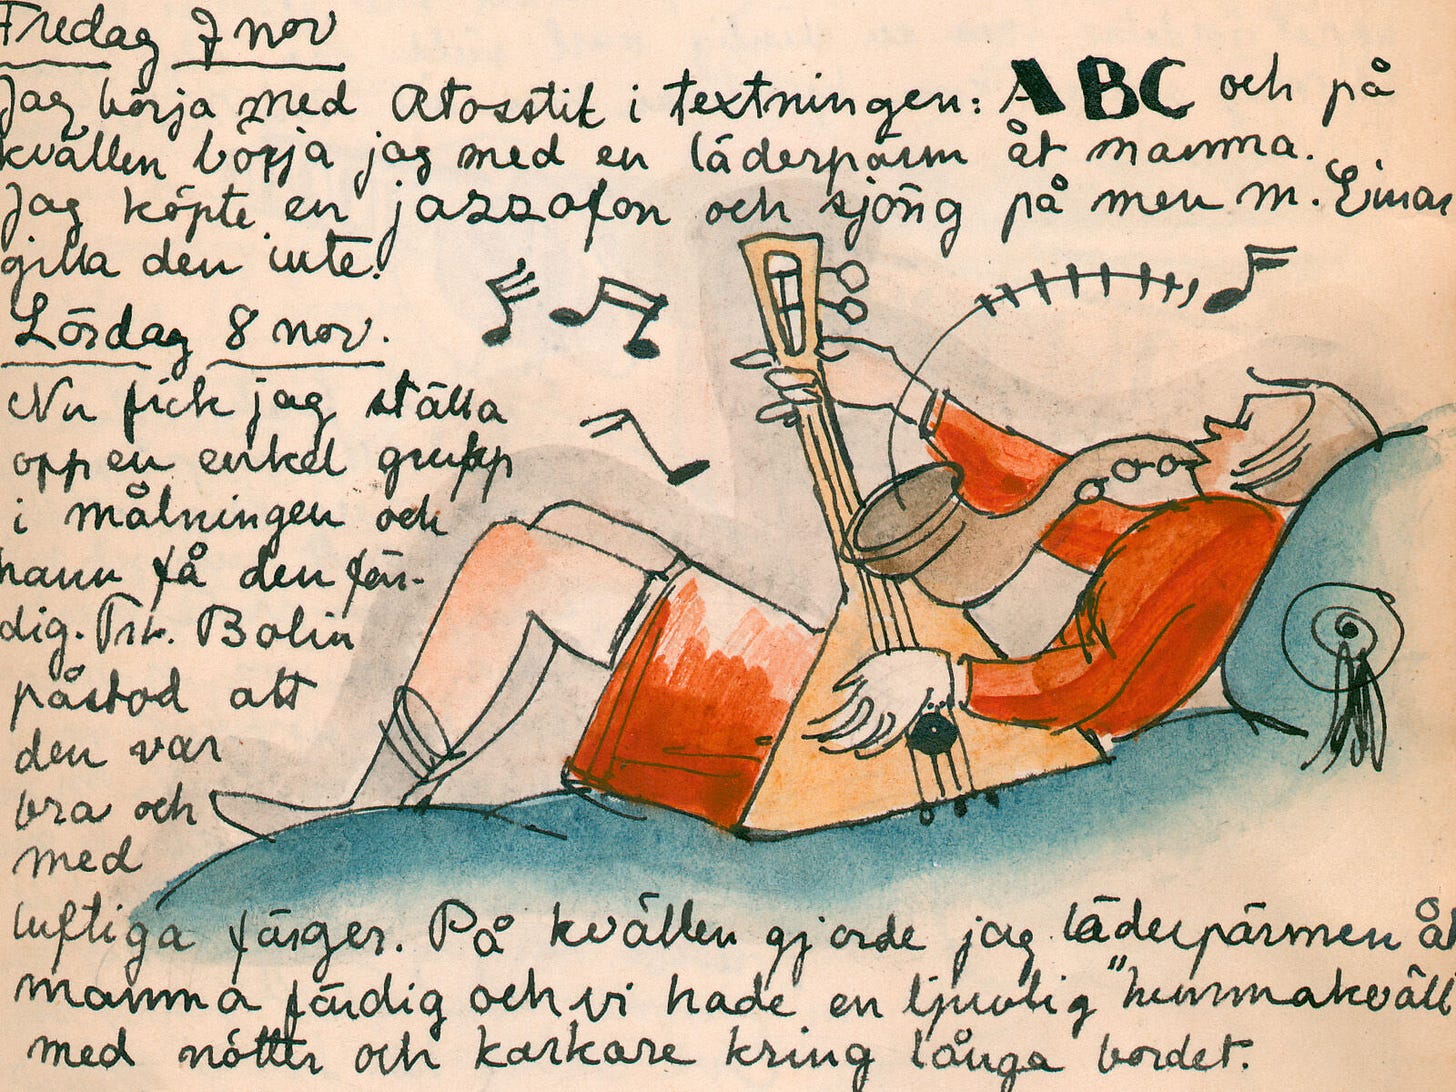 Fredag 7 nov
Jag börja med Atosstil i textningen: ABC och på
kvällen börja jag med en läderpärm åt mamma.
Jag köpte en jazzofon och sjöng på men m. Einar
gilla den inte.
Lördag 8 nov.
Nu fick jag ställa
opp en enkel grupp
i målningen och
hann få den fär-
dig. Frk. Bolin
påstod att
den var
bra och
med
luftiga färger. På kvällen gjorde jag läderpärmen åt
mamma färdig och vi hade en ljuvlig "hemmakväll
med nötter och karkare kring långa bordet.